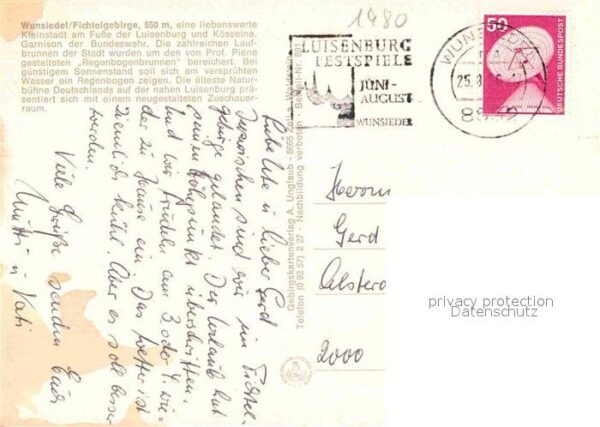 Wunsiedel/Fichtelgebirge, 550 m, eine liebenswerte
Kleinstadt am Fuße der Luisenburg und Kösseine.
Garnison der Bundeswehr. Die zahlreichen Lauf-
brunnen der Stadt wurden um den von Prof. Piene
gestalteten „Regenbogenbrunnen" bereichert. Bei
günstigem Sonnenstand soll sich am versprühten
Wasser ein Regenbogen zeigen. Die älteste Natur-
bühne Deutschlands auf der nahen Luisenburg prä-
sentiert sich mit einem neugestalteten Zuschauer-
raum.
1980
LUISENBURG
FESTSPIELE
JUNI-
AUGUST
WUNSIEDEL
WUNSIEDEL
25.8
50
DEUTSCHE BUNDESPOST
Gebirgskartenverlag A. Unglaub - 8665 Zell
Telefon (0 92 57) 2 27 - Nachbildung verboten
Liebe Ute u. lieber Gerd
Inzwischen sind wir im Fichtel-
gebirge gelandet. Der Urlaub hat
seinen Höhepunkt überschritten.
und wir trudeln am 3. oder 4. wie-
der zu Hause ein. Das Wetter ist
ziemlich kühl. Aber es soll besser
werden.
Viele Grüße senden Euch
Mutti u. Vati
Herrn
Gerd
Alsterd
2000
privacy protection
Datenschutz